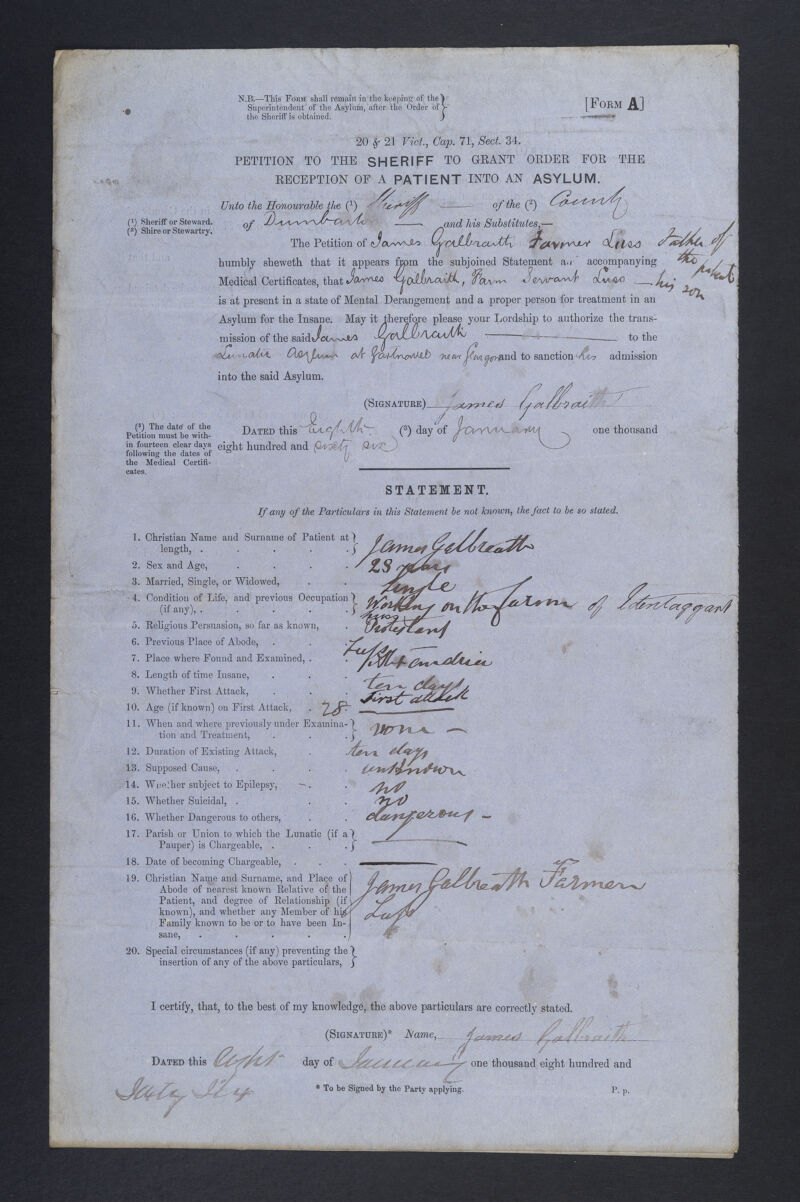 N.B.—This Form shall remain in the keeping of the
Superintendent of the Asylum, after the Order of
the Sheriff is obtained.
[Form A]
20 & 21 Vict., Cap. 71, Sect. 34.
PETITION TO THE SHERIFF TO GRANT ORDER FOR THE
RECEPTION OF A PATIENT INTO AN ASYLUM.
Unto the Honourable the (¹) Sheriff of the (²) County
(¹) Sheriff or Steward.
(²) Shire or Stewartry.
of Dumbarton and his Substitutes,—
The Petition of James Galbraith Farmer Luss Father of the patient
humbly sheweth that it appears from the subjoined Statement and accompanying
Medical Certificates, that James Galbraith, Farm Servant Luss — his son
is at present in a state of Mental Derangement and a proper person for treatment in an
Asylum for the Insane. May it therefore please your Lordship to authorize the trans-
mission of the said James Galbraith to the
Lunatic Asylum at Gartnavel near Glasgow and to sanction his admission
into the said Asylum.
(Signature) James Galbraith
(³) The date of the
Petition must be with-
in fourteen clear days
following the dates of
the Medical Certifi-
cates.
Dated this Eighth (³) day of January one thousand
eight hundred and sixty six
STATEMENT.
If any of the Particulars in this Statement be not known, the fact to be so stated.
1. Christian Name and Surname of Patient at
length, James Galbreath
2. Sex and Age, 28 years
3. Married, Single, or Widowed, Single
4. Condition of Life, and previous Occupation
(if any), Working on the farm of Edentaggart
5. Religious Persuasion, so far as known, Protestant
6. Previous Place of Abode, Luss
7. Place where Found and Examined, Alexandria
8. Length of time Insane, ten days
9. Whether First Attack, First attack
10. Age (if known) on First Attack, 28
11. When and where previously under Examina-
tion and Treatment, none —
12. Duration of Existing Attack, ten days
13. Supposed Cause, unknown
14. Whether subject to Epilepsy, no
15. Whether Suicidal, no
16. Whether Dangerous to others, dangerous —
17. Parish or Union to which the Lunatic (if a
Pauper) is Chargeable,
18. Date of becoming Chargeable,
19. Christian Name and Surname, and Place of
Abode of nearest known Relative of the
Patient, and degree of Relationship (if
known), and whether any Member of his
Family known to be or to have been In-
sane,
James Galbreath Farmer
Luss
20. Special circumstances (if any) preventing the
insertion of any of the above particulars,
I certify, that, to the best of my knowledge, the above particulars are correctly stated.
(Signature)* Name, James Galbraith
Dated this Eight day of January one thousand eight hundred and
Sixty Six
* To be Signed by the Party applying.
P. p.